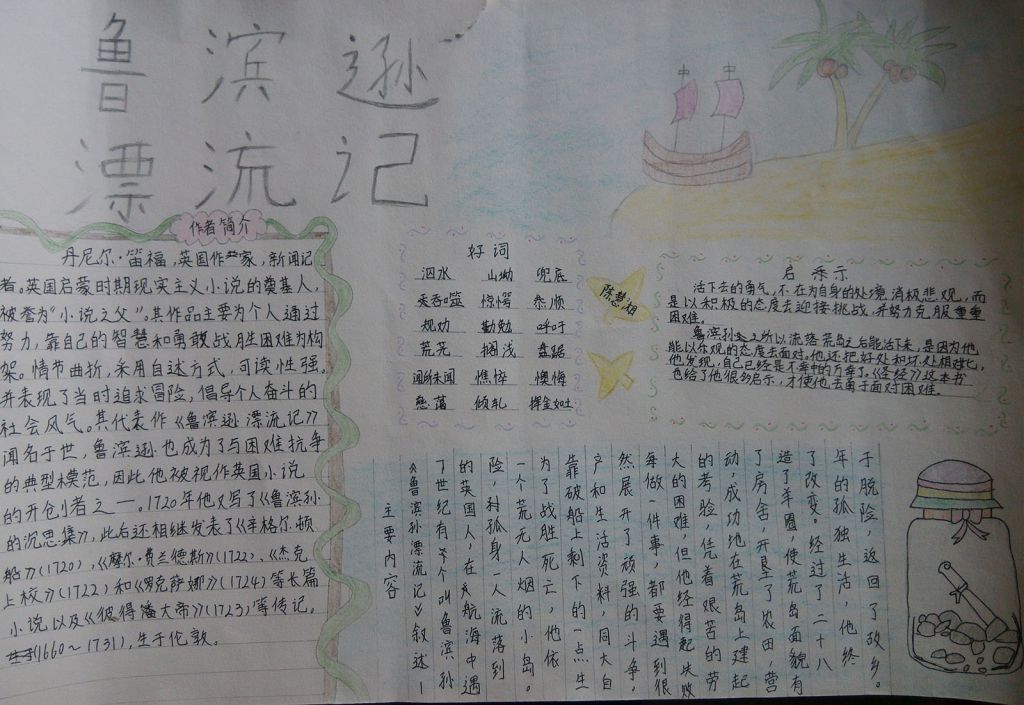 鲁滨逊
漂流记
作者简介
丹尼尔·笛福,英国作家,新闻记
者。英国启蒙时期现实主义小说的奠基人,
被誉为“小说之父”。其作品主要为个人通过
努力,靠自己的智慧和勇敢战胜困难为构
架。情节曲折,采用自述方式,可读性强。
并表现了当时追求冒险,倡导个人奋斗的
社会风气。其代表作《鲁滨逊漂流记》
闻名于世,鲁滨逊也成为了与困难抗争
的典型模范,因此他被视作英国小说
的开创者之一。1720年他又写了《鲁滨孙
的沉思集》,此后还相继发表了《辛格尔顿
船》(1720),《摩尔·费兰德斯》(1722)、《杰克
上校》(1722)和《罗克萨娜》(1724)等长篇
小说,以及《彼得潘大帝》(1723)等传记。
(1660~1731),生于伦敦。
好词
泅水 山坳 兜底
惊愕 恭顺
规劝 勤勉 呼吁
荒芜 搁浅 盘踞
闻所未闻 憔悴 懊悔
倾轧 挥金如土
陈慧姐
启示
活下去的勇气,不在为自身的处境消极悲观,而
是以积极的态度去迎接挑战,并努力克服重重
困难。
鲁滨孙之所以流落荒岛之后能活下来,是因为他
能以乐观的态度去面对。他还把好处和坏处相对比,
他发现,自己已经是不幸中的万幸了。《圣经》这本书
也给了他很多启示,才使他去勇于面对困难。
主要内容
《鲁滨孙漂流记》叙述一
了世纪有个叫鲁滨孙
的英国人,在航海中遇
险,孤身一人流落到
一个荒无人烟的小岛。
为了战胜死亡,他依
靠破船上剩下的一点生
产和生活资料,同大自
然展开了顽强的斗争。
每做一件事,都要遇到很
大的困难,但他经得起失败
的考验,凭着艰苦的劳
动成功地在荒岛上建起
了房舍,开垦了农田,营
造了羊圈,使荒岛面貌有
了改变。经过了二十八
年的孤独生活,他终
于脱险,返回了故乡。